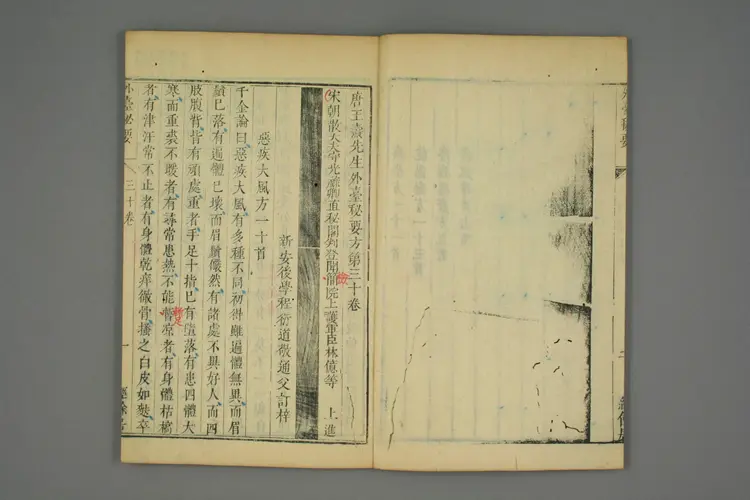 唐王燾先生外臺秘要方第三十卷
宋朝散大夫守光祿卿直秘閣判登聞檢院上護軍臣林億等 上進
新安後學程衍道敬通父訂梓
惡疾大風方一十首
千金論曰惡疾大風有多種不同初得雖遍體無異而眉
鬚已落有遍體已壞而眉鬚儼然有諸處不異好人而四
肢腹背有頑處重者手足十指已有墮落有患四體大
寒而重裘不暖者有尋常患熱不能暫涼者有身體枯槁
者有津汗常不止者有身體乾痒徹骨搔之白皮如麩卒
外臺秘要
三十卷
一